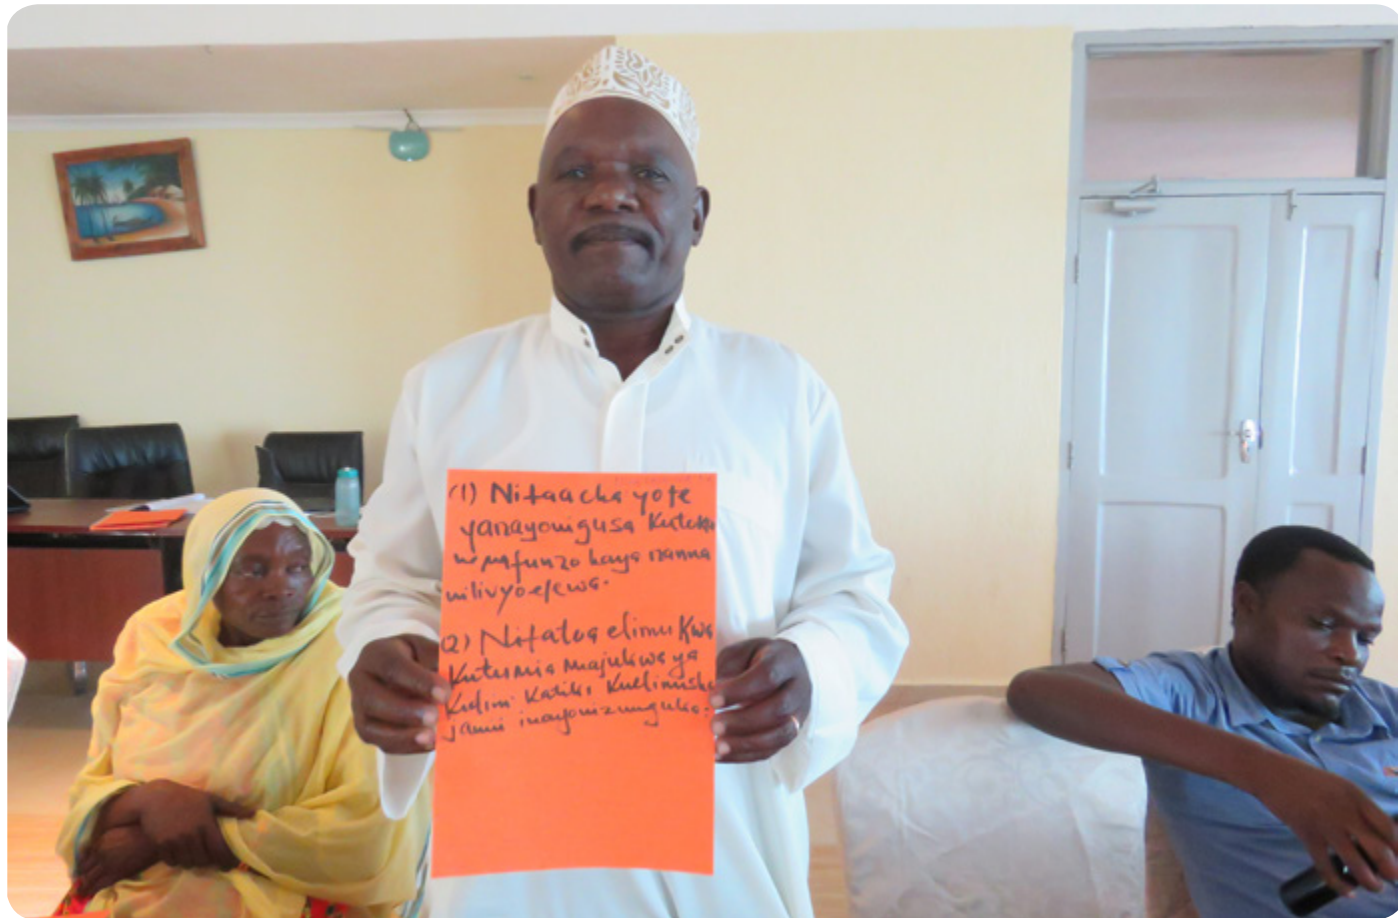 (1) Nitaacha yote
yanayonigusa kutoka
mafunzo haya namna
nilivyoelewa.
(2) Nitatoa elimu kwa
kutumia majukwaa ya
Kidini katika kuelimisha
jamii inayonizunguka.